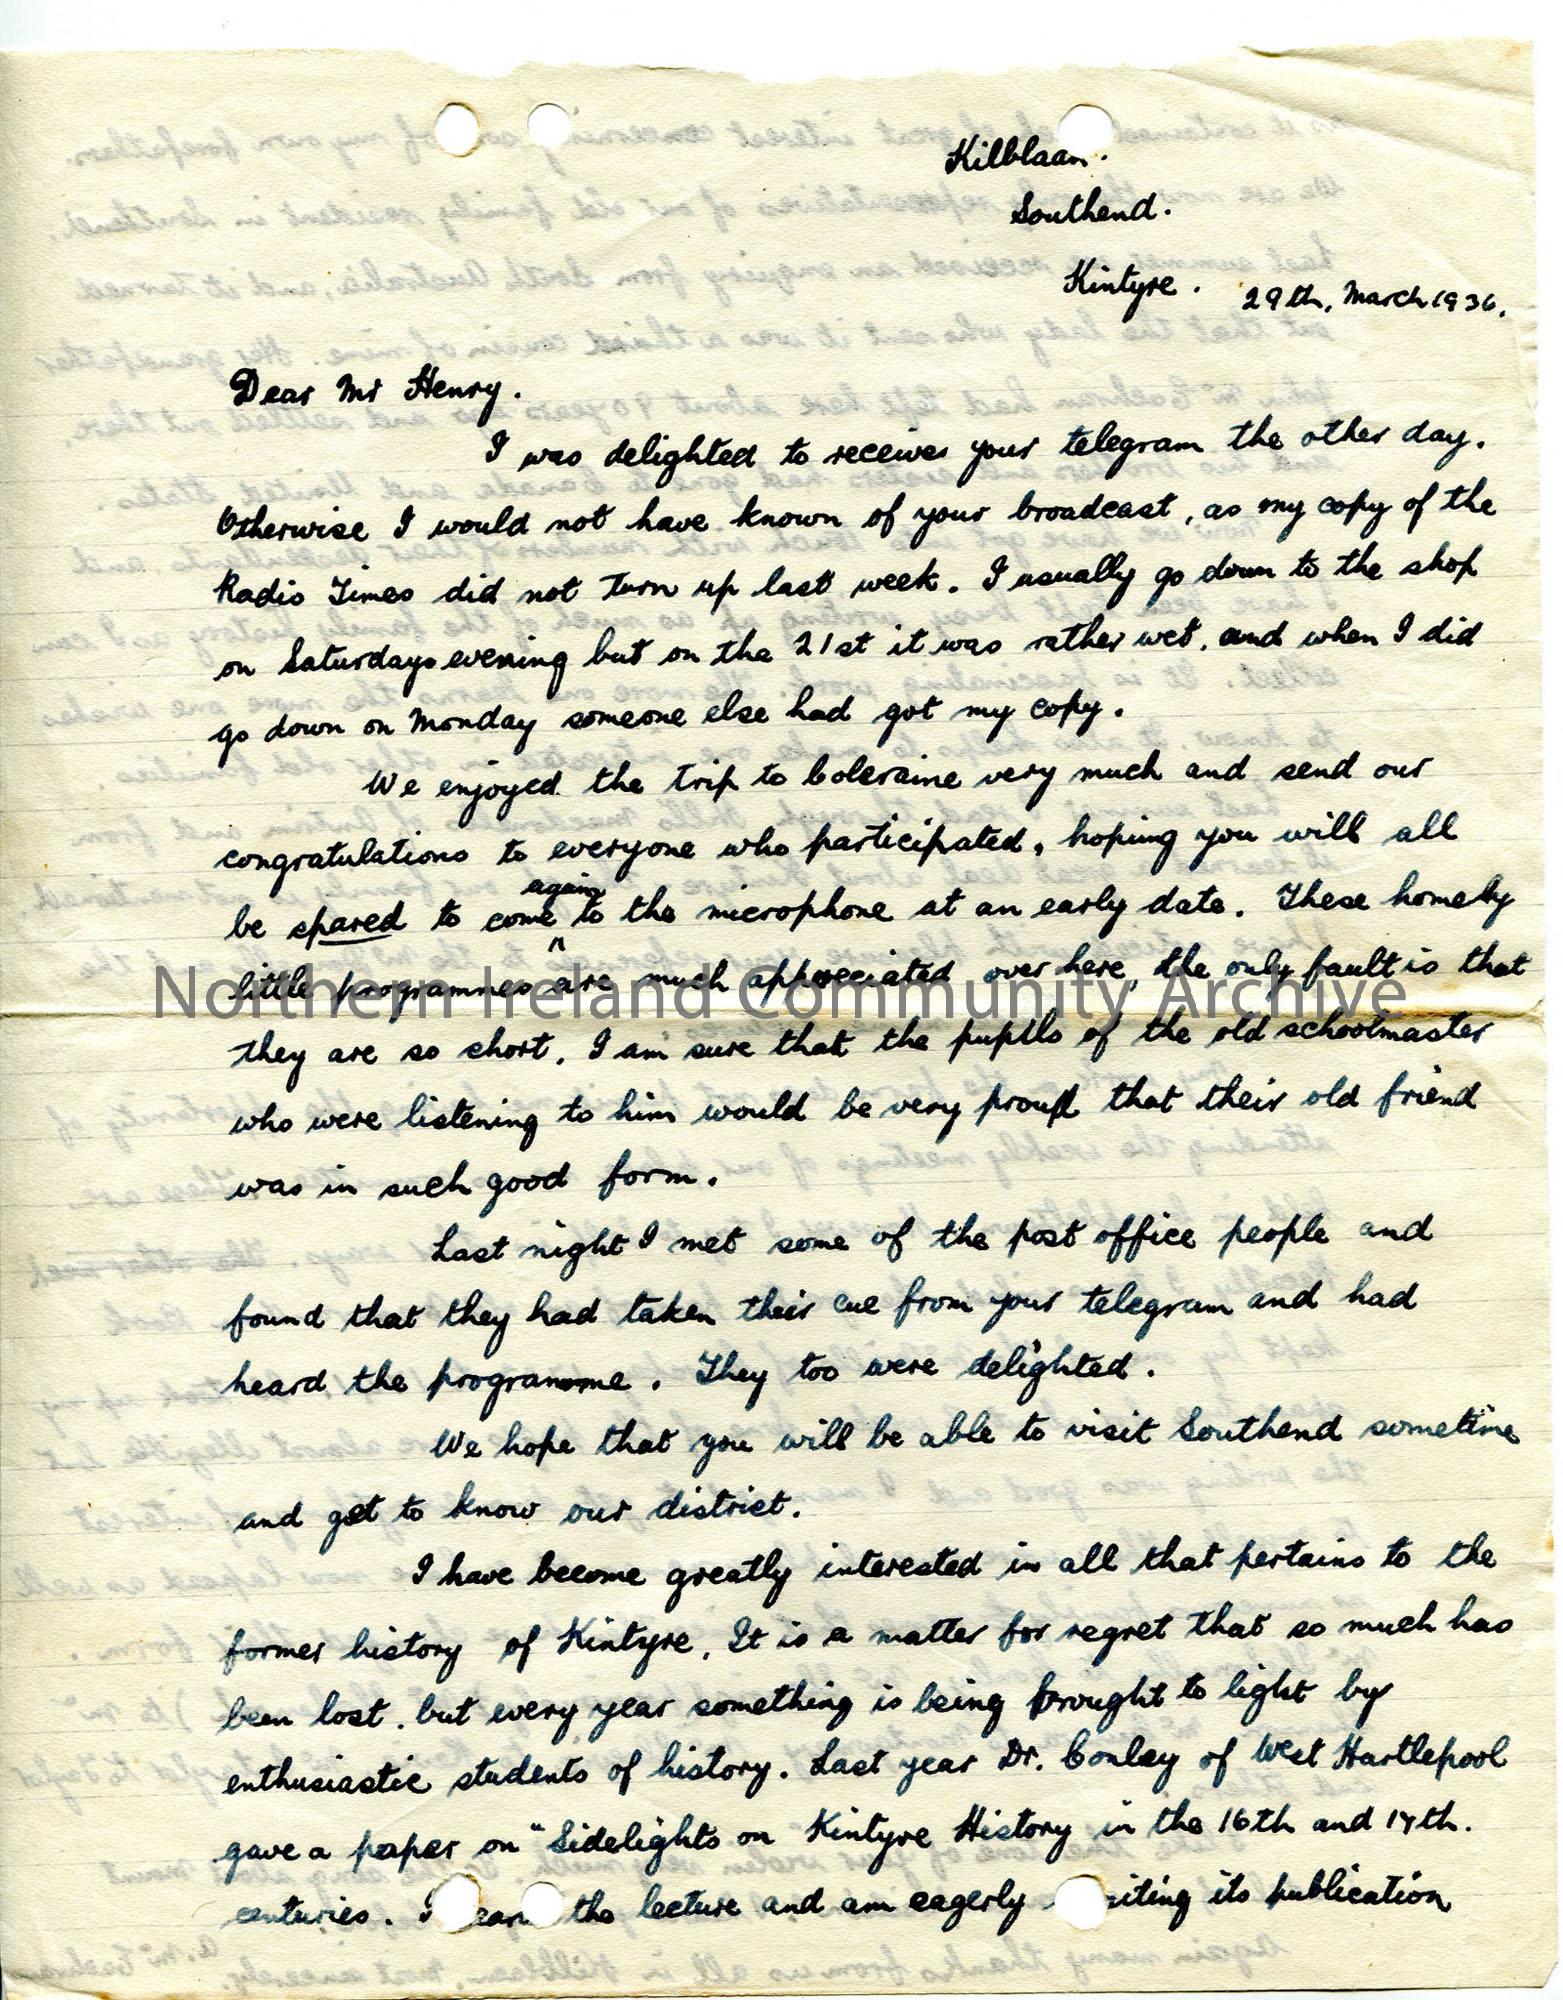 Kilblaan.
Southend.
Kintyre.
29th, March 1936.
Dear Mr Henry.
I was delighted to receive your telegram the other day.
Otherwise I would not have known of your broadcast, as my copy of the
Radio Times did not turn up last week. I usually go down to the shop
on Saturdays evening but on the 21st it was rather wet, and when I did
go down on Monday someone else had got my copy.
We enjoyed the trip to Coleraine very much and send our
congratulations to everyone who participated, hoping you will all
be spared to come again to the microphone at an early date. These homely
little programmes are much appreciated over here, the only fault is that
they are so short. I am sure that the pupils of the old schoolmaster
who were listening to him would be very proud that their old friend
was in such good form.
Last night I met some of the post office people and
found that they had taken their cue from your telegram and had
heard the programme. They too were delighted.
We hope that you will be able to visit Southend sometime
and get to know our district.
I have become greatly interested in all that pertains to the
former history of Kintyre. It is a matter for regret that so much has
been lost, but every year something is being brought to light by
enthusiastic students of history. Last year Dr. Conley of West Hartlepool
gave a paper on "Sidelights on Kintyre History in the 16th and 17th.
centuries. I the lecture and am eagerly its publication
Northern Ireland Community Archive